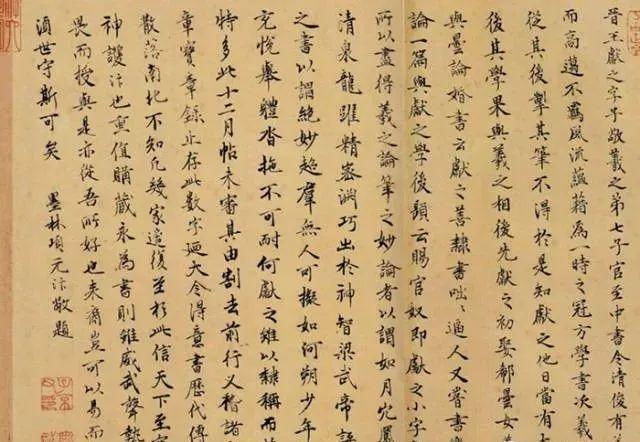 晉王獻之字子敬羲之弟七子官至中書令清俊有
而高邁不羈風流蘊藉為一時之冠方學書次羲
從其後掣其筆不得於是知獻之他日當有
後其學果與羲之相後先獻之初娶郗曇女
與曇論婚書云獻之善隸書咄咄逼人又嘗書
論一篇與獻之學後題云賜官奴即獻之小字
所以盡得羲之論筆之妙論者以謂如丹穴鳳
清泉龍躍精密淵巧出於神智梁武帝評
之書以謂絕妙超群無人可擬如何朔少年
充悅舉體沓拖不可耐何獻之雖以隸稱而
特多此十二月帖未審其由割去前行又稽諸
章寶章錄止存此數字廼大令得意書歷代傳
散落南北不知凡幾家遠復至於此信天下至
神護汴也重值購藏永為書則雖威武聲勢
畏而授與是亦從吾所好也來裔豈可以易而
酒世守斯可矣
墨林項元汴敬題